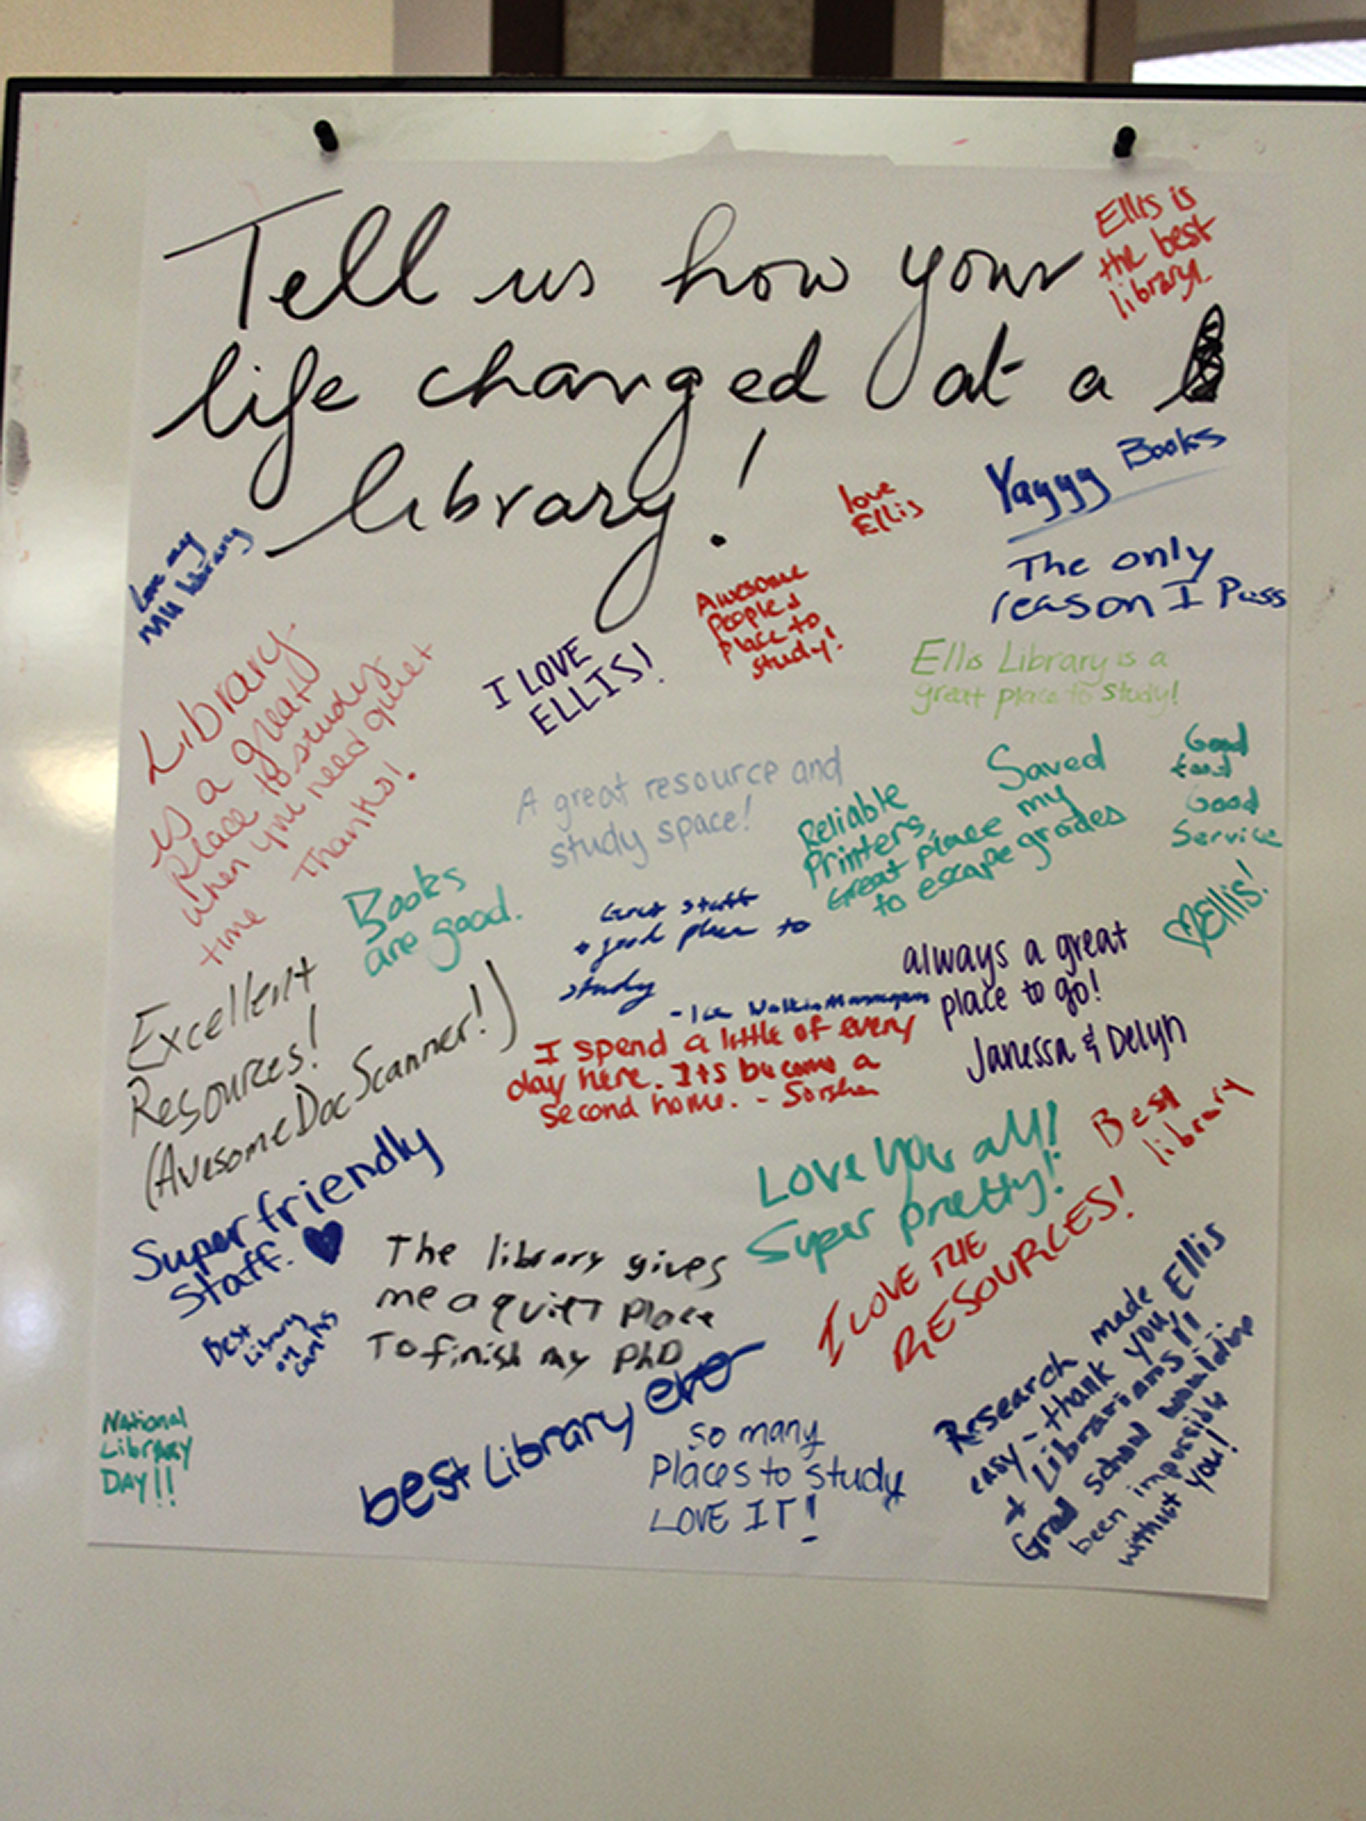 Tell us how your
life changed at a
library!
Ellis is
the best
library!
Yayyy Books
love
Ellis
Love my
MU library
The only
reason I Pass
Awesome
People &
Place to
study!
I LOVE
ELLIS!
Ellis Library is a
great place to study!
Library
is a great
place to study
when you need quiet
time
Thanks!
A great resource and
study space!
Saved
my
grades
Reliable
Printers
Great place
to escape
Good
food
Good
Service
Books
are good.
Great staff
+ good place to
study
♡Ellis!
always a great
place to go!
Janessa & Delyn
Excellent
Resources!
(Awesome Doc Scanner!)
I spend a little of every
day here. Its become a
second home. - Sorsha
Best
library
Love you all!
Super pretty!
Super friendly
staff. ♥
The library gives
me a quiet place
To finish my PhD
I LOVE THE
RESOURCES!
Best
Library
on
campus
Research made
easy - thank you, Ellis
+ Librarians!!
Grad school wouldve
been impossible
without you!
best Library ever
National
Library
DAY!!
So many
Places to study
LOVE IT!